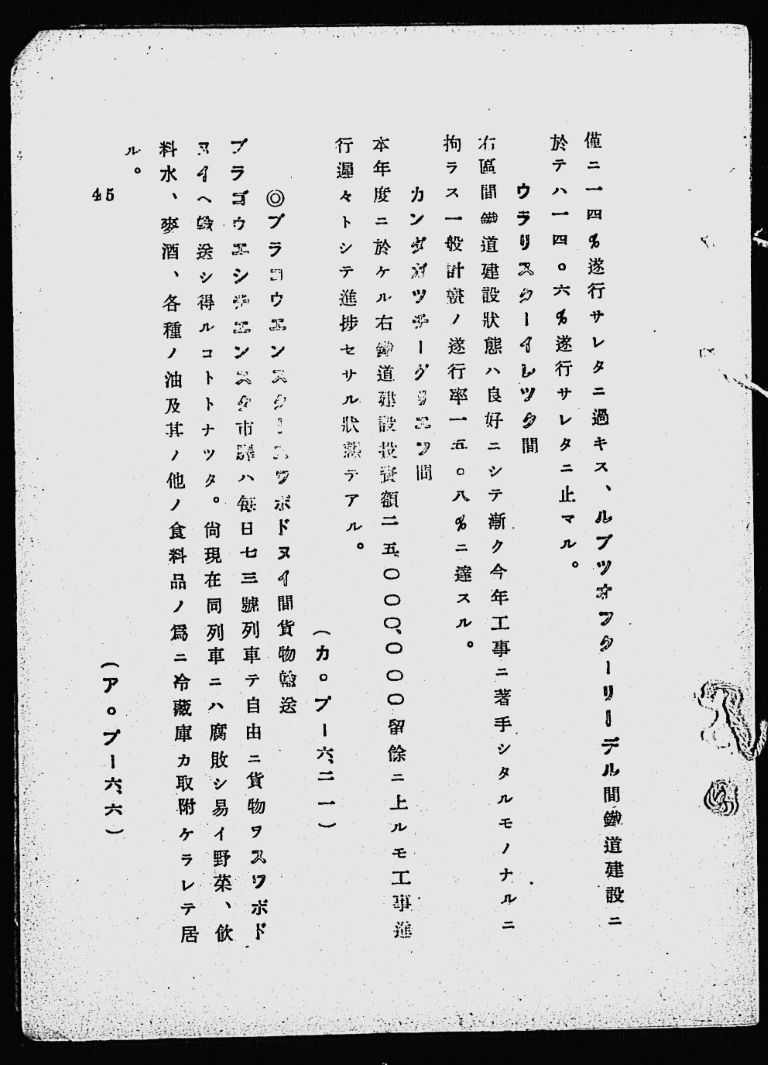 僅ニ一四%遂行サレタニ過キス、ルブツオフターリーデル間鐵道建設ニ
於テハ一四。六%遂行サレタニ止マル。
ウラリスターイレツク間
右區間鐵道建設狀態ハ良好ニシテ漸ク今年工事ニ著手シタルモノナルニ
拘ラス一般計畫ノ遂行率一五。八%ニ達スル。
カンダガツチーグリエフ間
本年度ニ於ケル右鐵道建設投資額二五、〇〇〇、〇〇〇留餘ニ上ルモ工事進
行遲々トシテ進捗セサル狀態テアル。
(カ。プー六、二一)
◎ブラゴウエンスクースワボドヌイ間貨物輸送
ブラゴウエシチエンスク市驛ハ每日七三號列車テ自由ニ貨物ヲスワボド
ヌイヘ輸送シ得ルコトトナツタ。尙現在同列車ニハ腐敗シ易イ野菜、飮
料水、麥酒、各種ノ油及其ノ他ノ食料品ノ爲ニ冷藏庫カ取附ケラレテ居
ル。
(ア。プー六、六)
45